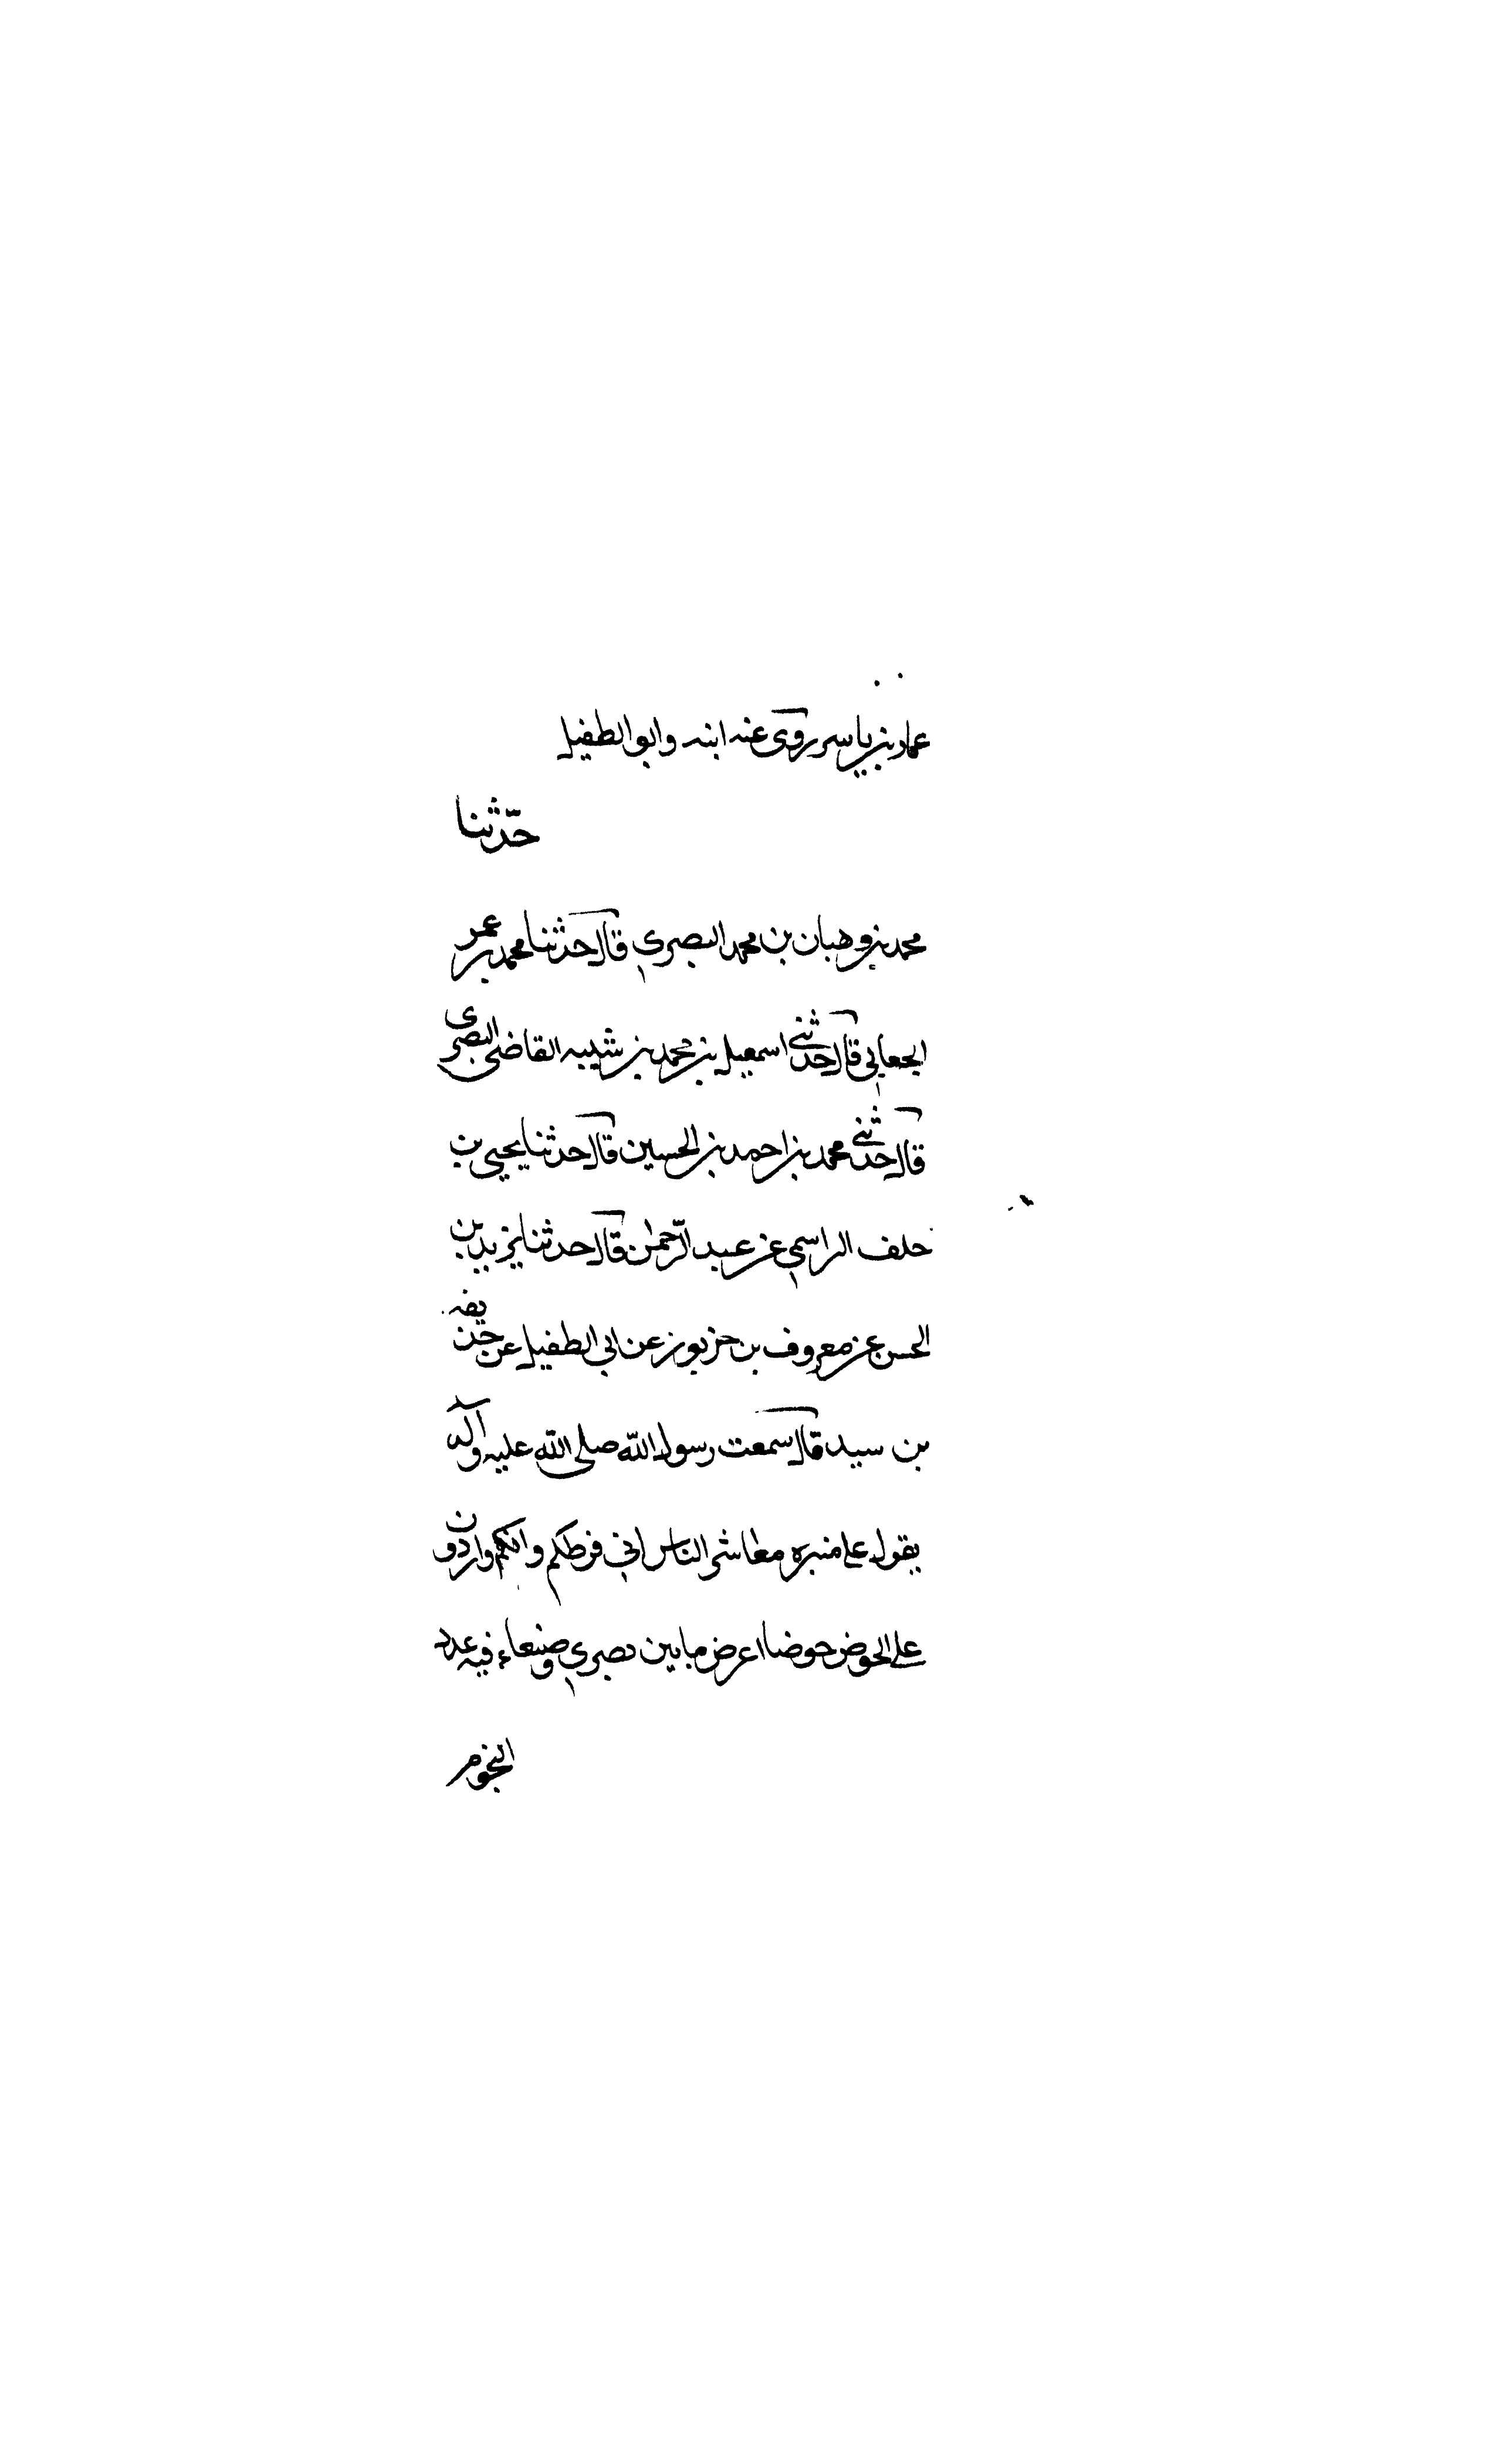 عمار بن ياسر روى عنه ابنه وابو الطفيل
حدّثنا
محمد بن وهبان بن محمد البصري قال حدثنا محمد بن عمر
الجعابي قال حدثني اسمعيل بن محمد بن شيبه القاضي البصرى
قال حدثني محمد بن احمد بن الحسين قال حدثنا يحيى بن
خلف الراسبي عن عبد الرّحمٰن قال حدثنا يزيد بن
الحسن عن معروف بن خربوز عن ابي الطفيل عن حذيفه
بن سيد قال سمعت رسول الله صلى الله عليه وآله
يقول على منبره معاشر الناس اني فرطكم وانكم واردون
على الحوض حوضا اعرض ما بين بصري وصنعاء فيه عدد
النجوم